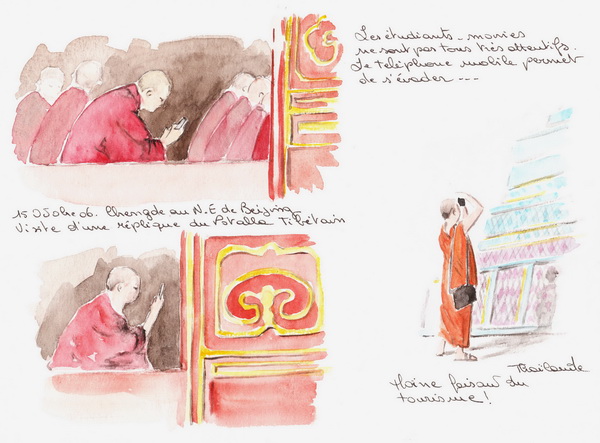 Les étudiants-moines
ne sont pas tous très attentifs.
Le téléphone mobile permet
de s'évader ---
15 Octobre 06. Chengde au N.E de Beijing
Visite d'une réplique du Potalla Tibétain
Thaïlande
Moine faisant du
tourisme!